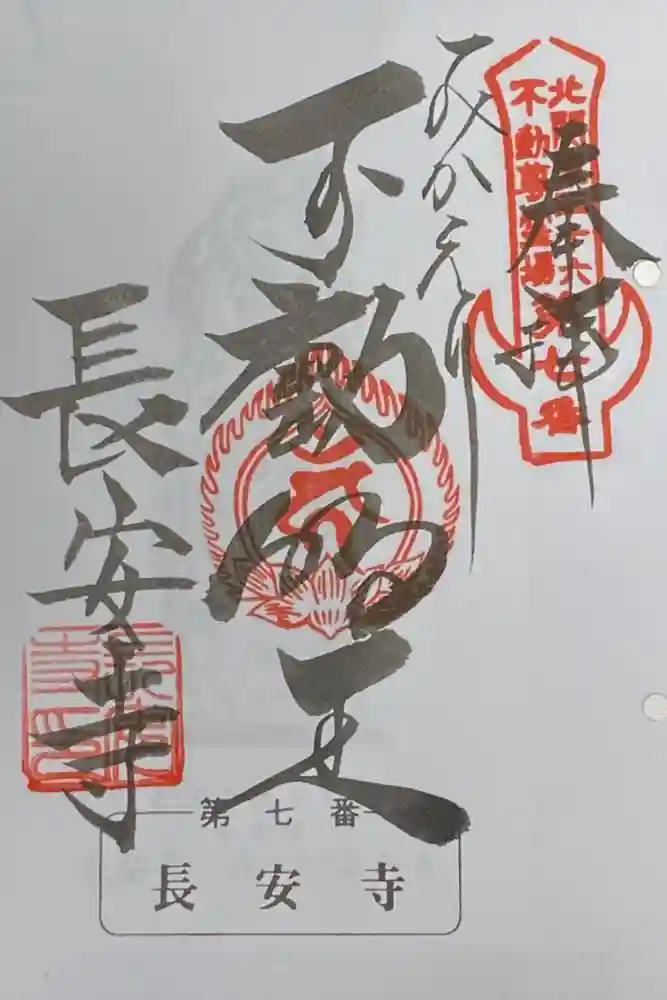 北関東三十六
不動尊霊場
第七番
奉拝
みかえり
不動明王
長安寺
第七番
長安寺